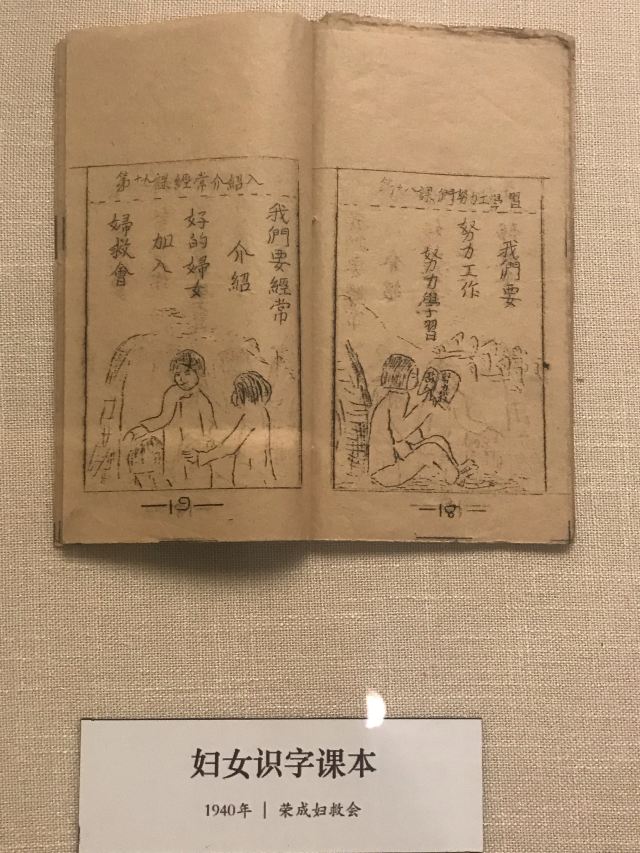 第十八課們努力學習
我們要
努力工作
努力學習
—18—
第十課經常介紹入
我們要經常
介紹
好的婦女
加入
婦救會
—19—
妇女识字课本
1940年 | 荣成妇救会